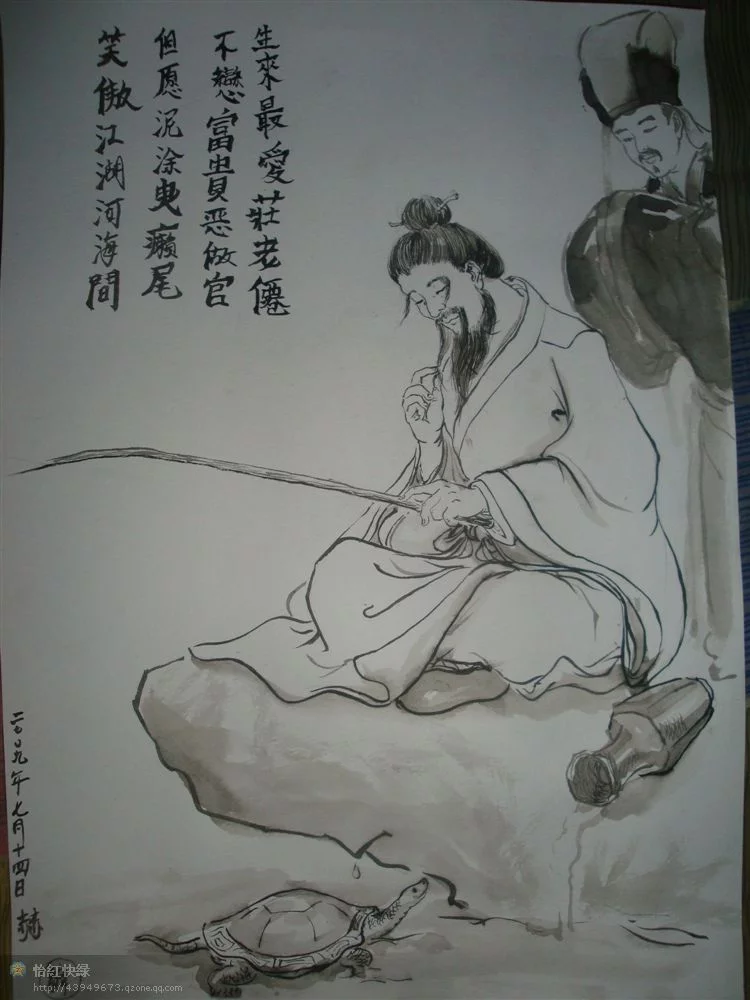 生來最愛莊老僊
不戀富貴惡做官
但愿泥涂曳癩尾
笑傲江湖河海間
二〇〇九年七月十四日
怡红快绿
http://43949673.qzone.qq.com